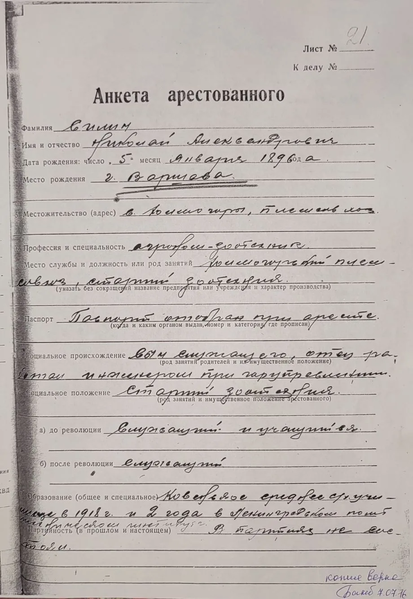 Лист № 21
К делу №
Анкета арестованного
Фамилия Силин
Имя и отчество Николай Александрович
Дата рождения: число 5 месяц Января 1896 года
Место рождения г. Варшава.
Местожительство (адрес) с. Холмогоры, племсовхоз
Профессия и специальность агроном-зоотехник.
Место службы и должность или род занятий Холмогорский племсовхоз, старший зоотехник.
(указать без сокращений название предприятия или учреждения и характер производства)
Паспорт Паспорт отобран при аресте.
(когда и каким органом выдан, номер и категория, где прописан)
социальное происхождение Сын служащего, отец работал инженером при
(род занятий родителей и их имущественное положение)
социальное положение Старший зоотехник.
(род занятий и имущественное положение арестованного)
а) до революции Служащий и учащийся
б) после революции служащий
образование (общее и специальное) среднее
в 1918 г. и 2 года в Ленинградском
(в прошлом и настоящем) В партиях не состоял.
копия верна